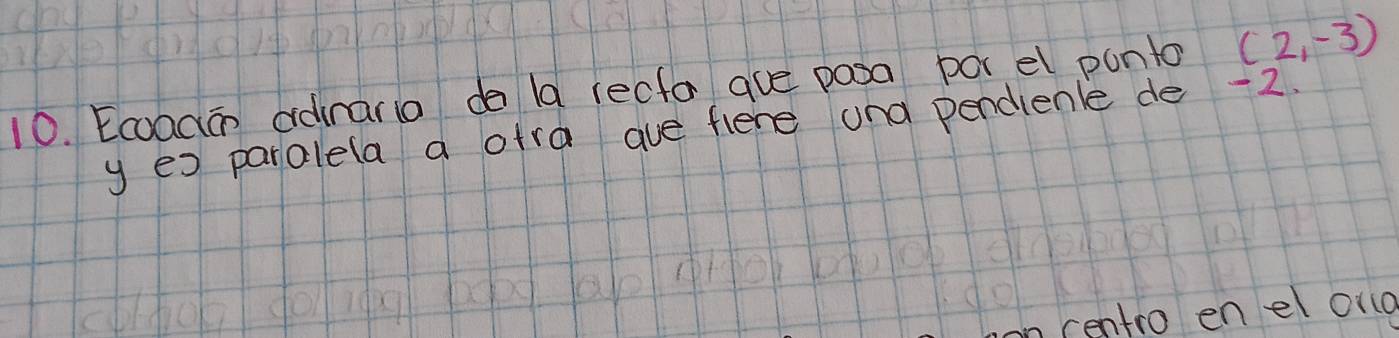 10. Ecuación ordinaria de la recta que pasa por el punto (2,-3)
y es paralela a otra que tiene una pendiente de -2.
con centro en el orig